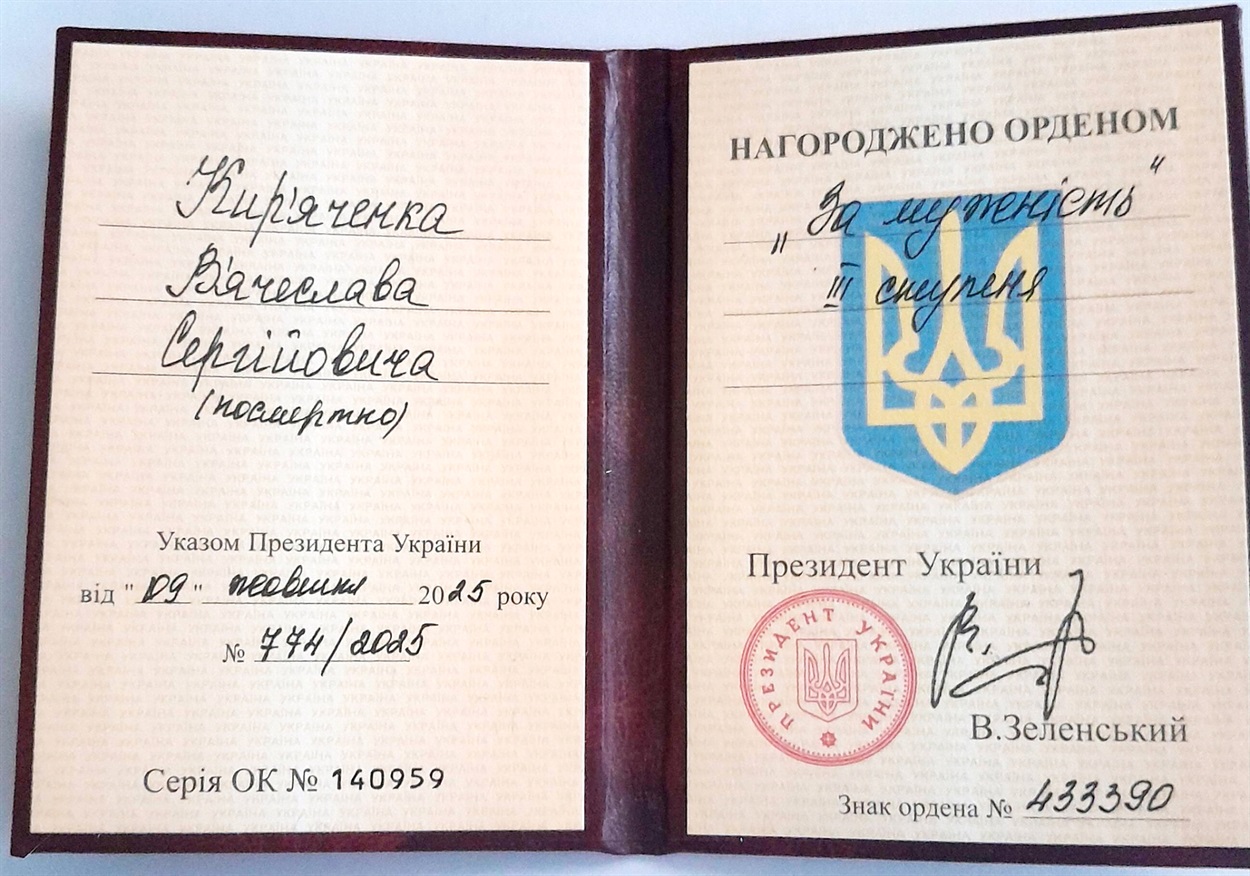 Кир'яченка
В'ячеслава
Сергійовича
(посмертно)
Указом Президента України
від "09" жовтня 2025 року
№ 774/2025
Серія ОК № 140959
НАГОРОДЖЕНО ОРДЕНОМ
„За мужність“
III ступеня
Президент України
ПРЕЗИДЕНТ УКРАЇНИ
В.Зеленський
Знак ордена № 433390